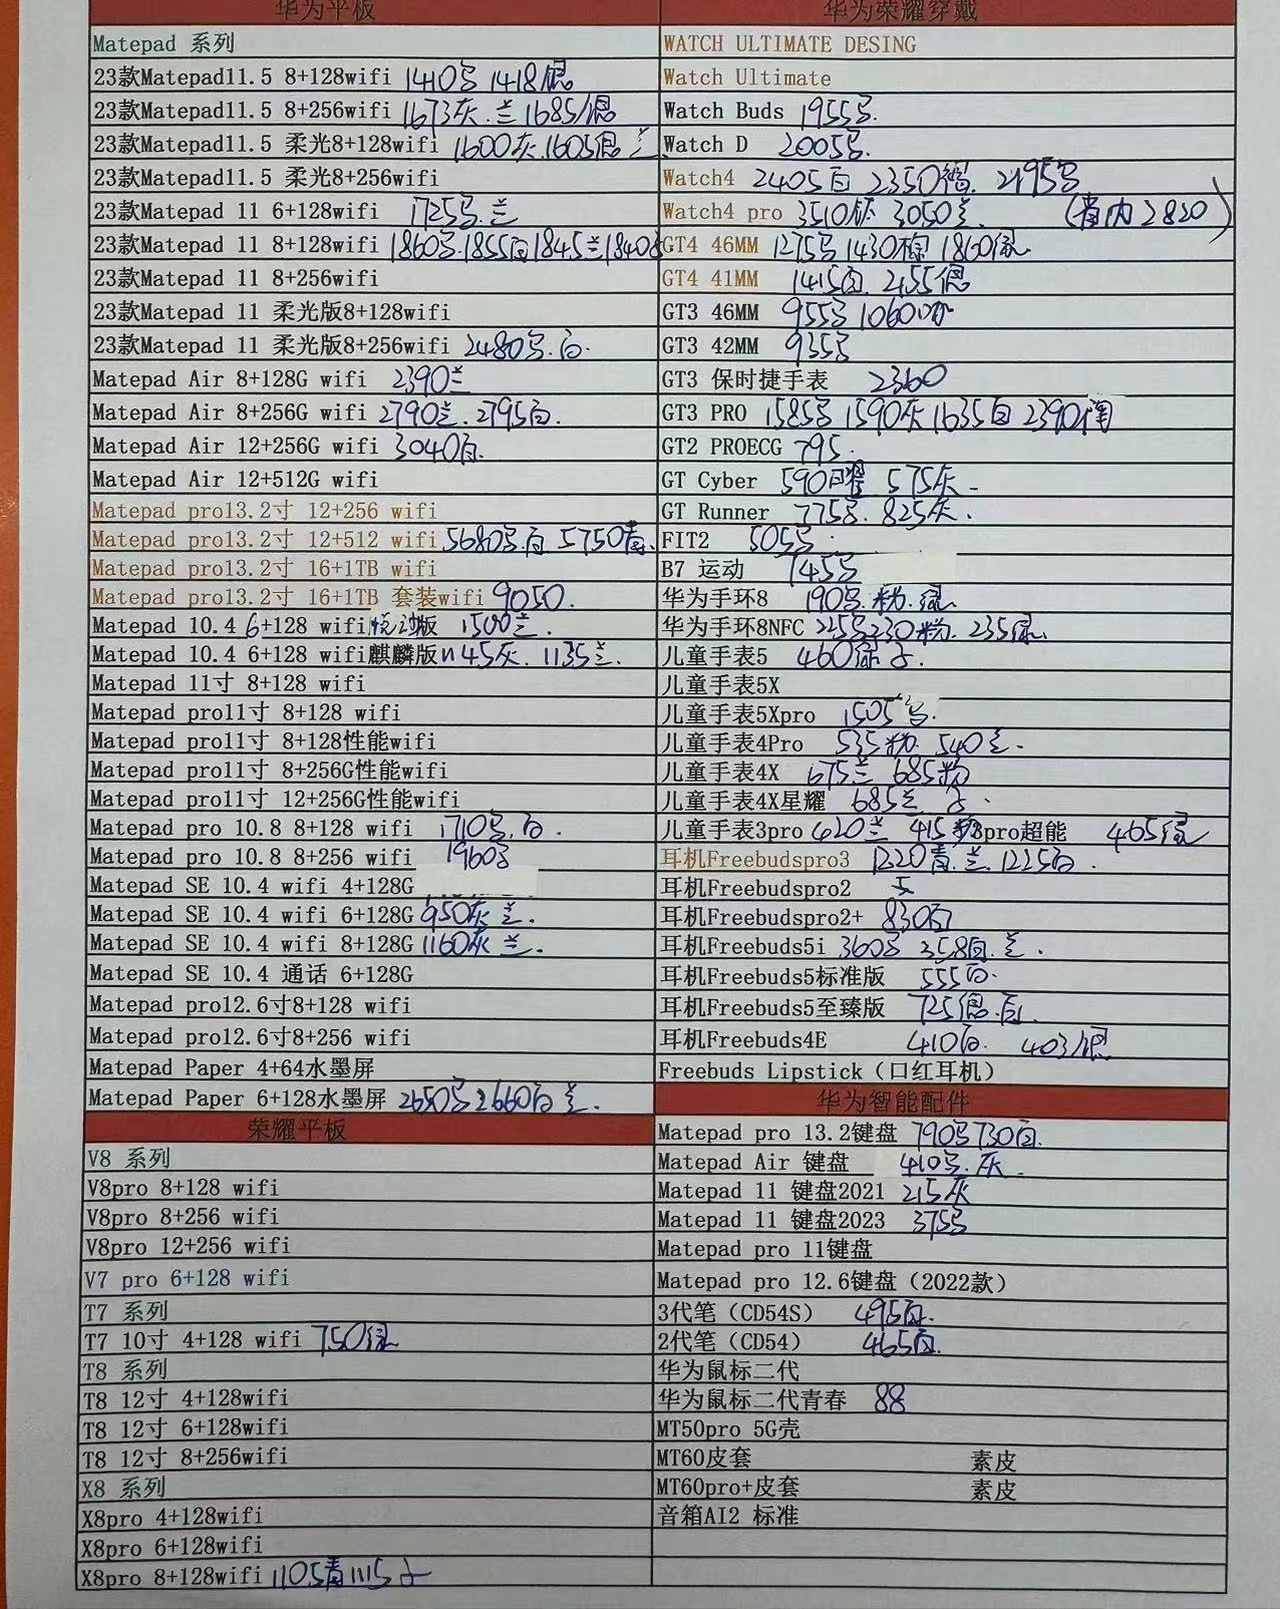 华为平板
Matepad 系列
23款Matepad11.5 8+128wifi 1410 1418银
23款Matepad11.5 8+256wifi 1673灰.兰 1685银
23款Matepad11.5 柔光8+128wifi 1600灰.1605银 兰
23款Matepad11.5 柔光8+256wifi
23款Matepad 11 6+128wifi 1725 兰
23款Matepad 11 8+128wifi 1860 1855白1845兰1840
23款Matepad 11 8+256wifi
23款Matepad 11 柔光版8+128wifi
23款Matepad 11 柔光版8+256wifi 2480 白.
Matepad Air 8+128G wifi 2390兰
Matepad Air 8+256G wifi 2790兰.2795白.
Matepad Air 12+256G wifi 3040白.
Matepad Air 12+512G wifi
Matepad pro13.2寸 12+256 wifi
Matepad pro13.2寸 12+512 wifi 5680 白 5750青.
Matepad pro13.2寸 16+1TB wifi
Matepad pro13.2寸 16+1TB 套装wifi 9050.
Matepad 10.4 6+128 wifi 版 1500兰.
Matepad 10.4 6+128 wifi麒麟版1145灰.1135兰.
Matepad 11寸 8+128 wifi
Matepad pro11寸 8+128 wifi
Matepad pro11寸 8+128性能wifi
Matepad pro11寸 8+256G性能wifi
Matepad pro11寸 12+256G性能wifi
Matepad pro 10.8 8+128 wifi 1710 白.
Matepad pro 10.8 8+256 wifi 1960
Matepad SE 10.4 wifi 4+128G
Matepad SE 10.4 wifi 6+128G 950灰兰.
Matepad SE 10.4 wifi 8+128G 1160灰兰.
Matepad SE 10.4 通话 6+128G
Matepad pro12.6寸8+128 wifi
Matepad pro12.6寸8+256 wifi
Matepad Paper 4+64水墨屏
Matepad Paper 6+128水墨屏 2650 2660白兰.
荣耀平板
V8 系列
V8pro 8+128 wifi
V8pro 8+256 wifi
V8pro 12+256 wifi
V7 pro 6+128 wifi
T7 系列
T7 10寸 4+128 wifi 750绿
T8 系列
T8 12寸 4+128wifi
T8 12寸 6+128wifi
T8 12寸 8+256wifi
X8 系列
X8pro 4+128wifi
X8pro 6+128wifi
X8pro 8+128wifi 1105青1115
华为荣耀穿戴
WATCH ULTIMATE DESING
Watch Ultimate
Watch Buds 1955
Watch D 2005
Watch4 2405白 2350褐. 2195
Watch4 pro 3510钛 3050兰. (省内2820)
GT4 46MM 1275 1430棕 1860绿
GT4 41MM 1415白 2455银
GT3 46MM 955 1060
GT3 42MM 935
GT3 保时捷手表 2360
GT3 PRO 1585 1590灰1635白 2390陶
GT2 PROECG 795.
GT Cyber 590曜 575灰
GT Runner 775 825灰.
FIT2 505
B7 运动 745
华为手环8 190 粉.绿
华为手环8NFC 225 230粉.235绿
儿童手表5 460绿
儿童手表5X
儿童手表5Xpro 1505
儿童手表4Pro 535粉 540兰.
儿童手表4X 675兰 685粉
儿童手表4X星耀 685兰
儿童手表3pro 420兰 415粉 3pro超能 465绿
耳机Freebudspro3 1220青.兰.1225白.
耳机Freebudspro2
耳机Freebudspro2+ 830白
耳机Freebuds5i 360 358白.兰.
耳机Freebuds5标准版 555白.
耳机Freebuds5至臻版 725银.白.
耳机Freebuds4E 410白. 403银
Freebuds Lipstick（口红耳机）
华为智能配件
Matepad pro 13.2键盘 790 730白.
Matepad Air 键盘 410 灰
Matepad 11 键盘2021 215灰
Matepad 11 键盘2023 375
Matepad pro 11键盘
Matepad pro 12.6键盘（2022款）
3代笔（CD54S） 495白.
2代笔（CD54） 465白.
华为鼠标二代
华为鼠标二代青春 88
MT50pro 5G壳
MT60皮套 素皮
MT60pro+皮套 素皮
音箱AI2 标准